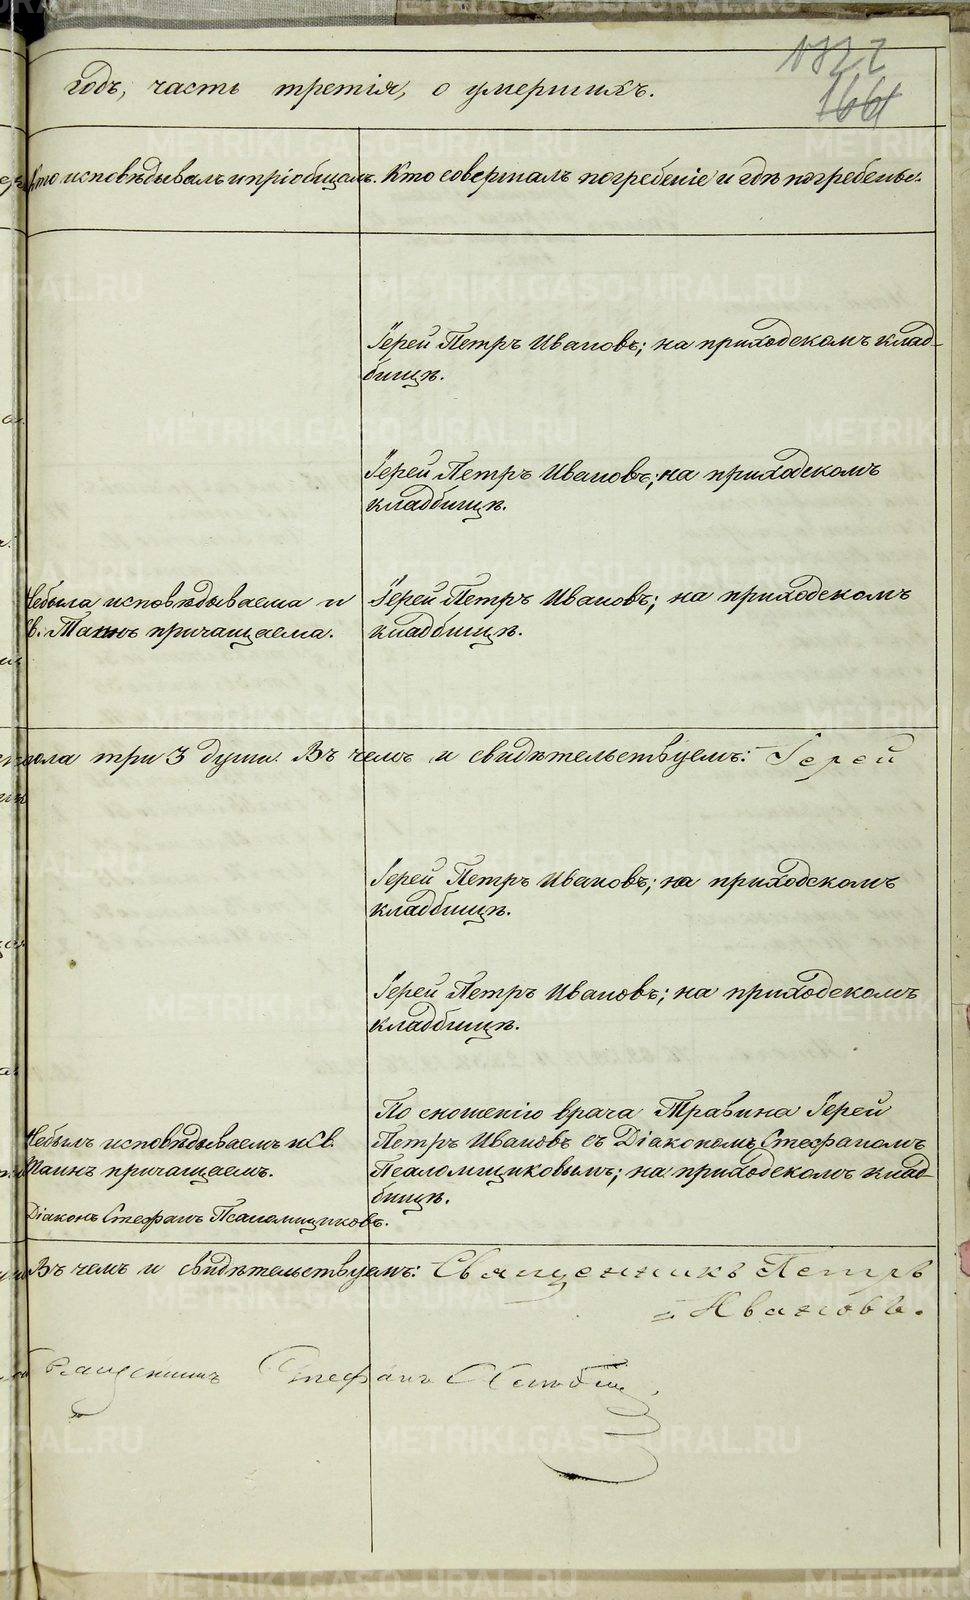 годъ, часть третія, о умершихъ.
166
Кто исповѣдывалъ и пріобщалъ. Кто совершалъ погребеніе и гдѣ погребены.
Іерей Петръ Ивановъ; на приходскомъ клад-
бищѣ.
Іерей Петръ Ивановъ; на приходскомъ
кладбищѣ.
Небыла исповѣдываема и
Св. Таинъ причащаема.
Іерей Петръ Ивановъ; на приходскомъ
кладбищѣ.
пола три 3 души. Въ чемъ и свидѣтельствуемъ: Іерей
Іерей Петръ Ивановъ; на приходскомъ
кладбищѣ.
Іерей Петръ Ивановъ; на приходскомъ
кладбищѣ.
Небылъ исповѣдываемъ и Св.
Таинъ причащаемъ.
Діаконъ Стефанъ Псаломщиковъ.
По сношенію врача Травина Іерей
Петръ Ивановъ съ Діакономъ Стефаномъ
Псаломщиковымъ; на приходскомъ клад-
бищѣ.
Въ чемъ и свидѣтельствуемъ: Священникъ Петръ
Ивановъ.
Стефанъ
METRIKI.GASO-URAL.RU